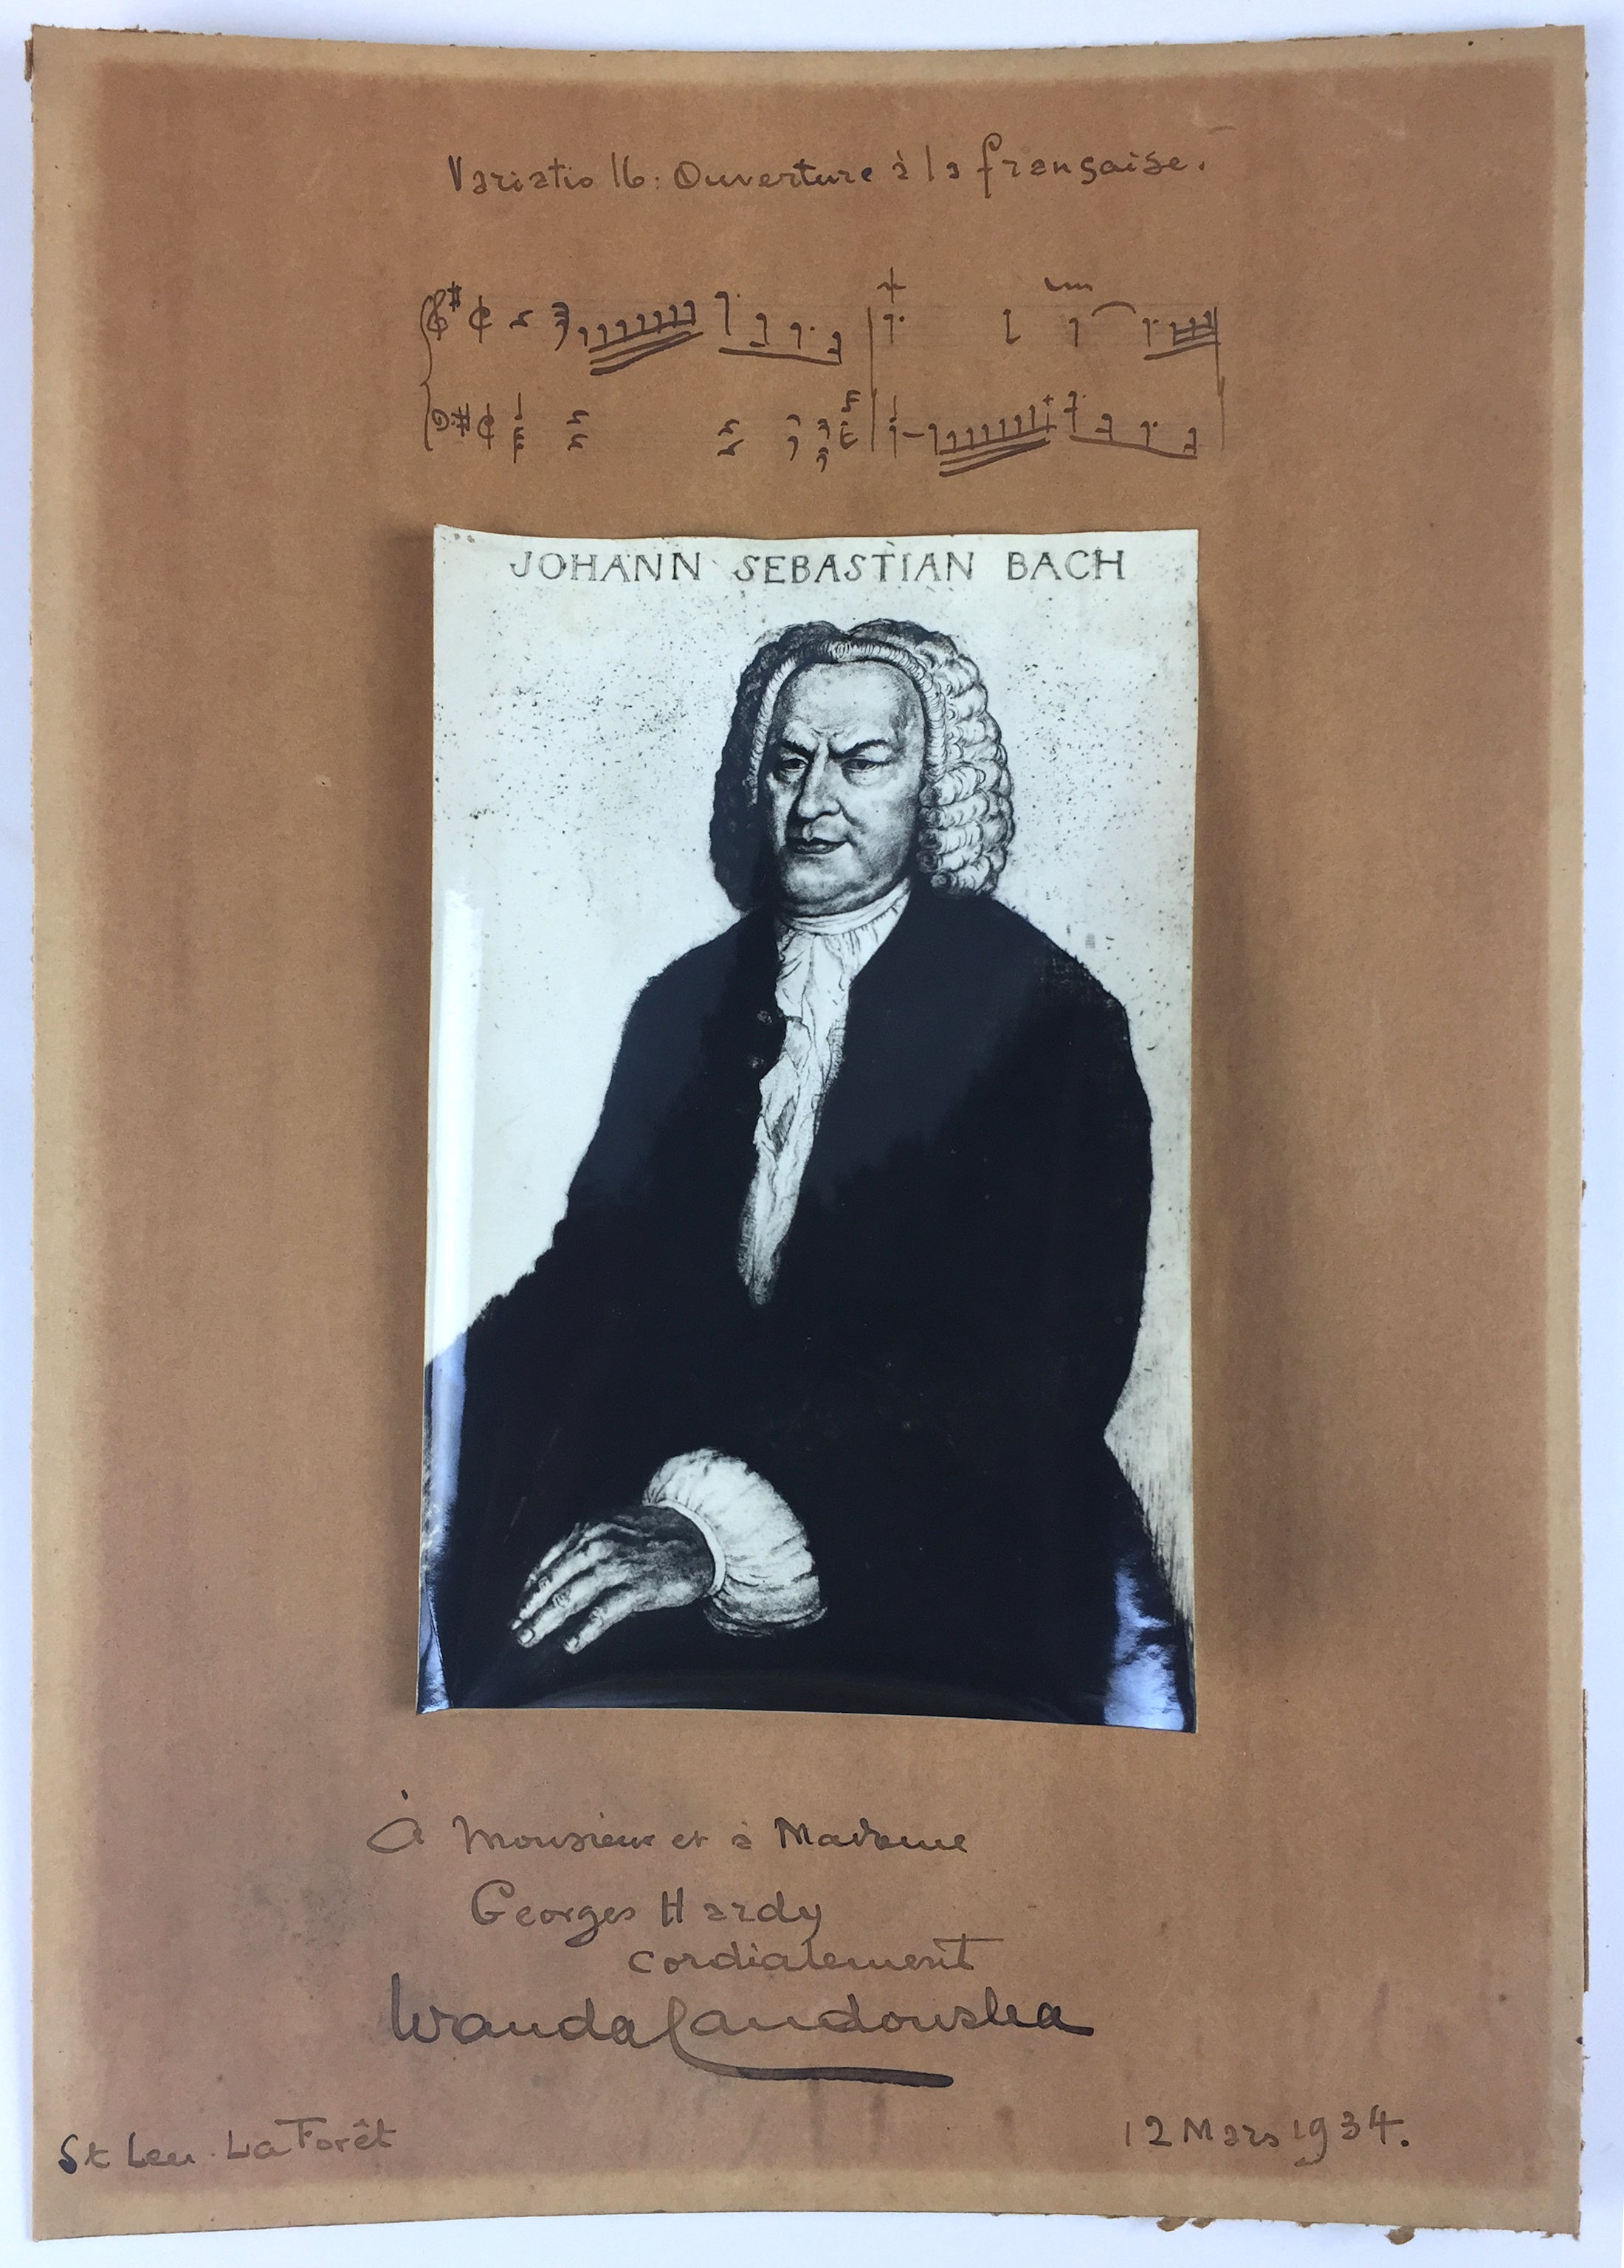 Variatio 16: Ouverture à la française.
JOHANN SEBASTIAN BACH
À Monsieur et à Madame
Georges Hardy
cordialement
Wanda Landowska
St Leu. La Forêt
12 Mars 1934.